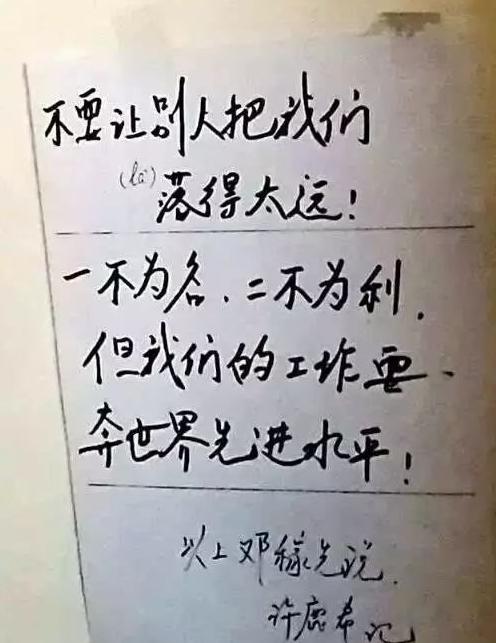 不要让别人把我们
(là)落得太远！
一不为名、二不为利，
但我们的工作要、
奔世界先进水平！
以上邓稼先说.
许鹿希记